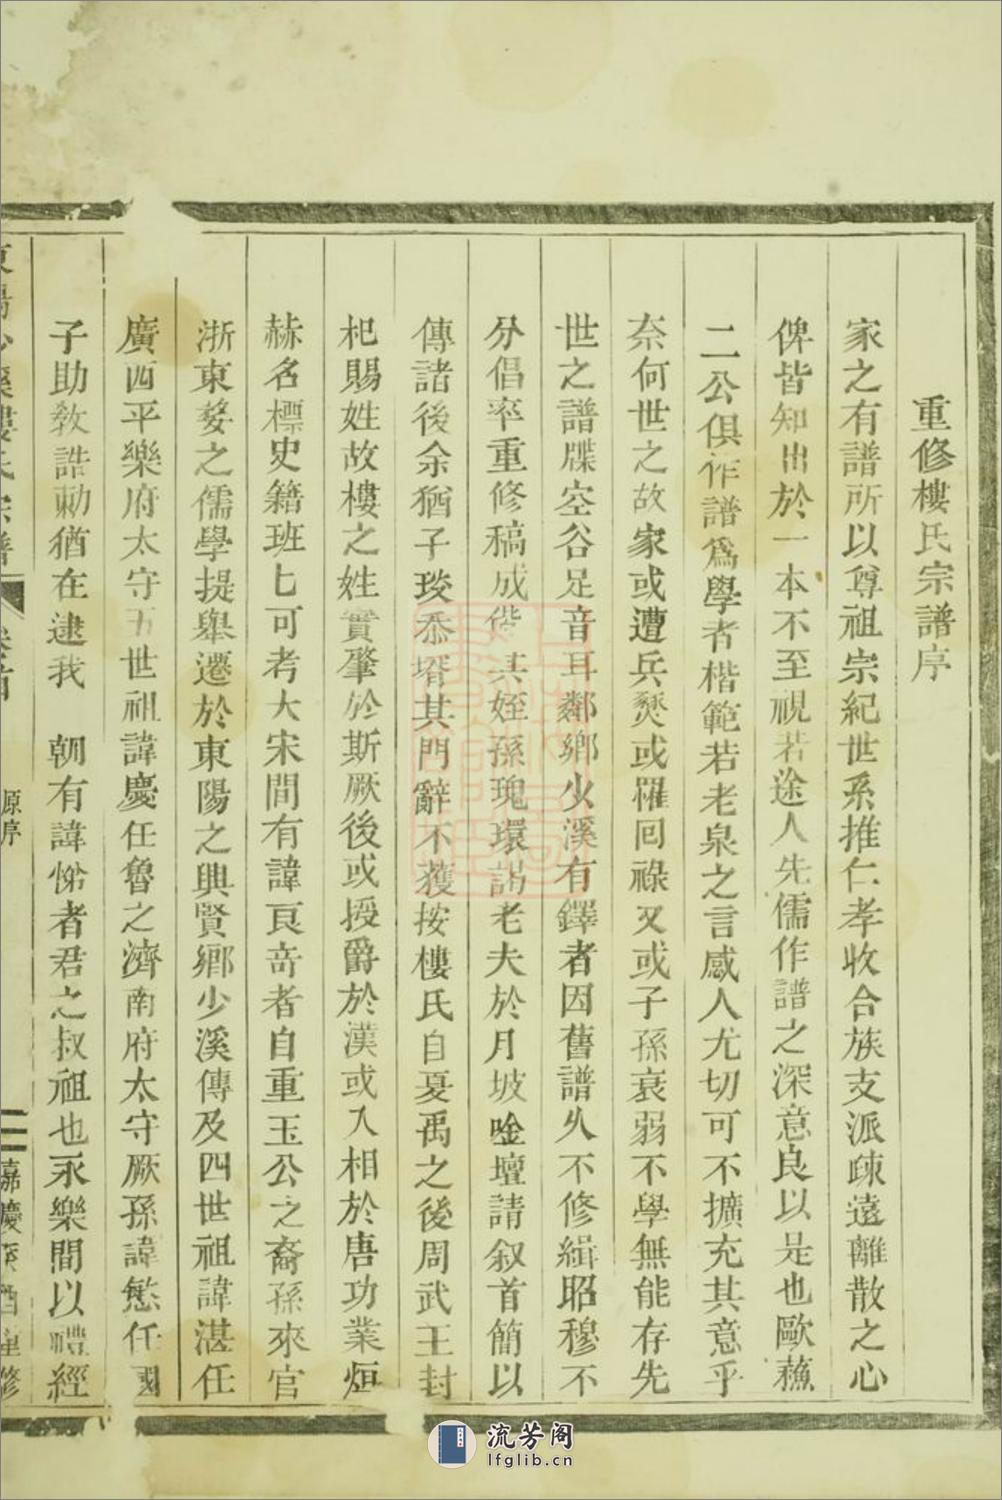 重修樓氏宗譜序
家之有譜所以尊祖宗紀世系推仁孝收合族支派疎遠離散之心
俾皆知出於一本不至視若途人先儒作譜之深意良以是也歐蘓
二公俱作譜爲學者楷範若老泉之言感人尤切可不擴充其意乎
奈何世之故家或遭兵燹或罹回祿又或子孫衰弱不學無能存先
世之譜牒空谷足音耳鄰鄉少溪有鐸者因舊譜久不修緝昭穆不
分倡率重修稿成偕其姪孫瑰環謁老夫於月坡唫壇請叙首簡以
傳諸後余猶子琰忝壻其門辭不獲按樓氏自夏禹之後周武王封
杞賜姓故樓之姓實肇於斯厥後或授爵於漢或入相於唐功業烜
赫名標史籍班七可考大宋間有諱㒹奇者自重玉公之裔孫來官
浙東婺之儒學提舉遷於東陽之興賢鄉少溪傳及四世祖諱湛任
廣西平樂府太守五世祖諱慶任魯之濟南府太守厥孫諱慜任國
子助敎誥勅猶在逮我 朝有諱悌者君之叔祖也永樂間以禮經
東陽少溪樓氏宗譜 卷首 原序 二 嘉慶癸酉重修
流芳阁
lfglib.cn